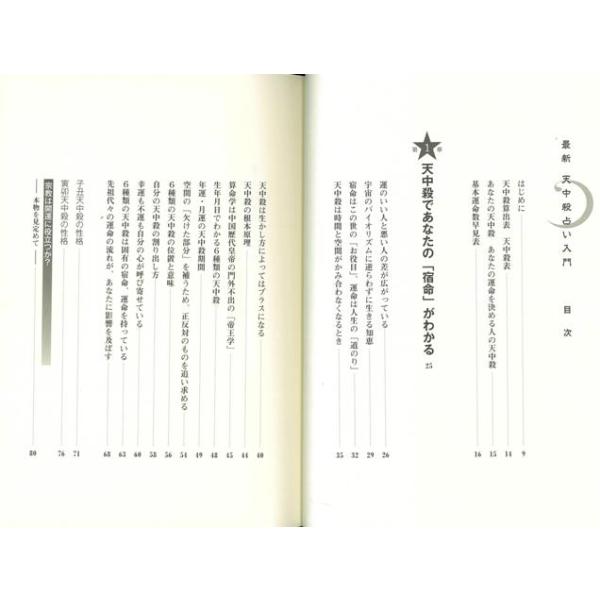 最新 天中殺占い入門 目次
はじめに 9
天中殺算出表 天中殺表 14
あなたの天中殺 あなたの運命を決める人の天中殺 15
基本運命数早見表 16
第1章 天中殺であなたの「宿命」がわかる 25
運のいい人と悪い人の差が広がっている 26
宇宙のバイオリズムに逆らわずに生きる知恵 29
宿命はこの世の「お役目」、運命は人生の「道のり」 32
天中殺は時間と空間がかみ合わなくなるとき 35
天中殺は生かし方によってはプラスになる 40
天中殺の根本原理 44
算命学は中国歴代皇帝の門外不出の「帝王学」 45
生年月日でわかる6種類の天中殺 48
年運・月運の天中殺期間 49
空間の「欠けた部分」を補うため、正反対のものを追い求める 54
6種類の天中殺の位置と意味 56
自分の天中殺の割り出し方 58
幸運も不運も自分の心が呼び寄せている 60
6種類の天中殺は固有の宿命、運命を持っている 63
先祖代々の運命の流れが、あなたに影響を及ぼす 68
子丑天中殺の性格 71
寅卯天中殺の性格 76
宗教は開運に役立つか?
──本物を見定めて 80